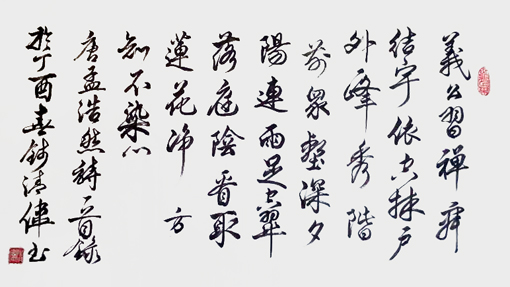 義公習禪寂
結宇依空林戶
外峰秀階
前眾壑深夕
陽連雨足空翠
落庭陰看取
蓮花淨方
知不染心
唐孟浩然詩一首錄
於丁酉春錢清偉書